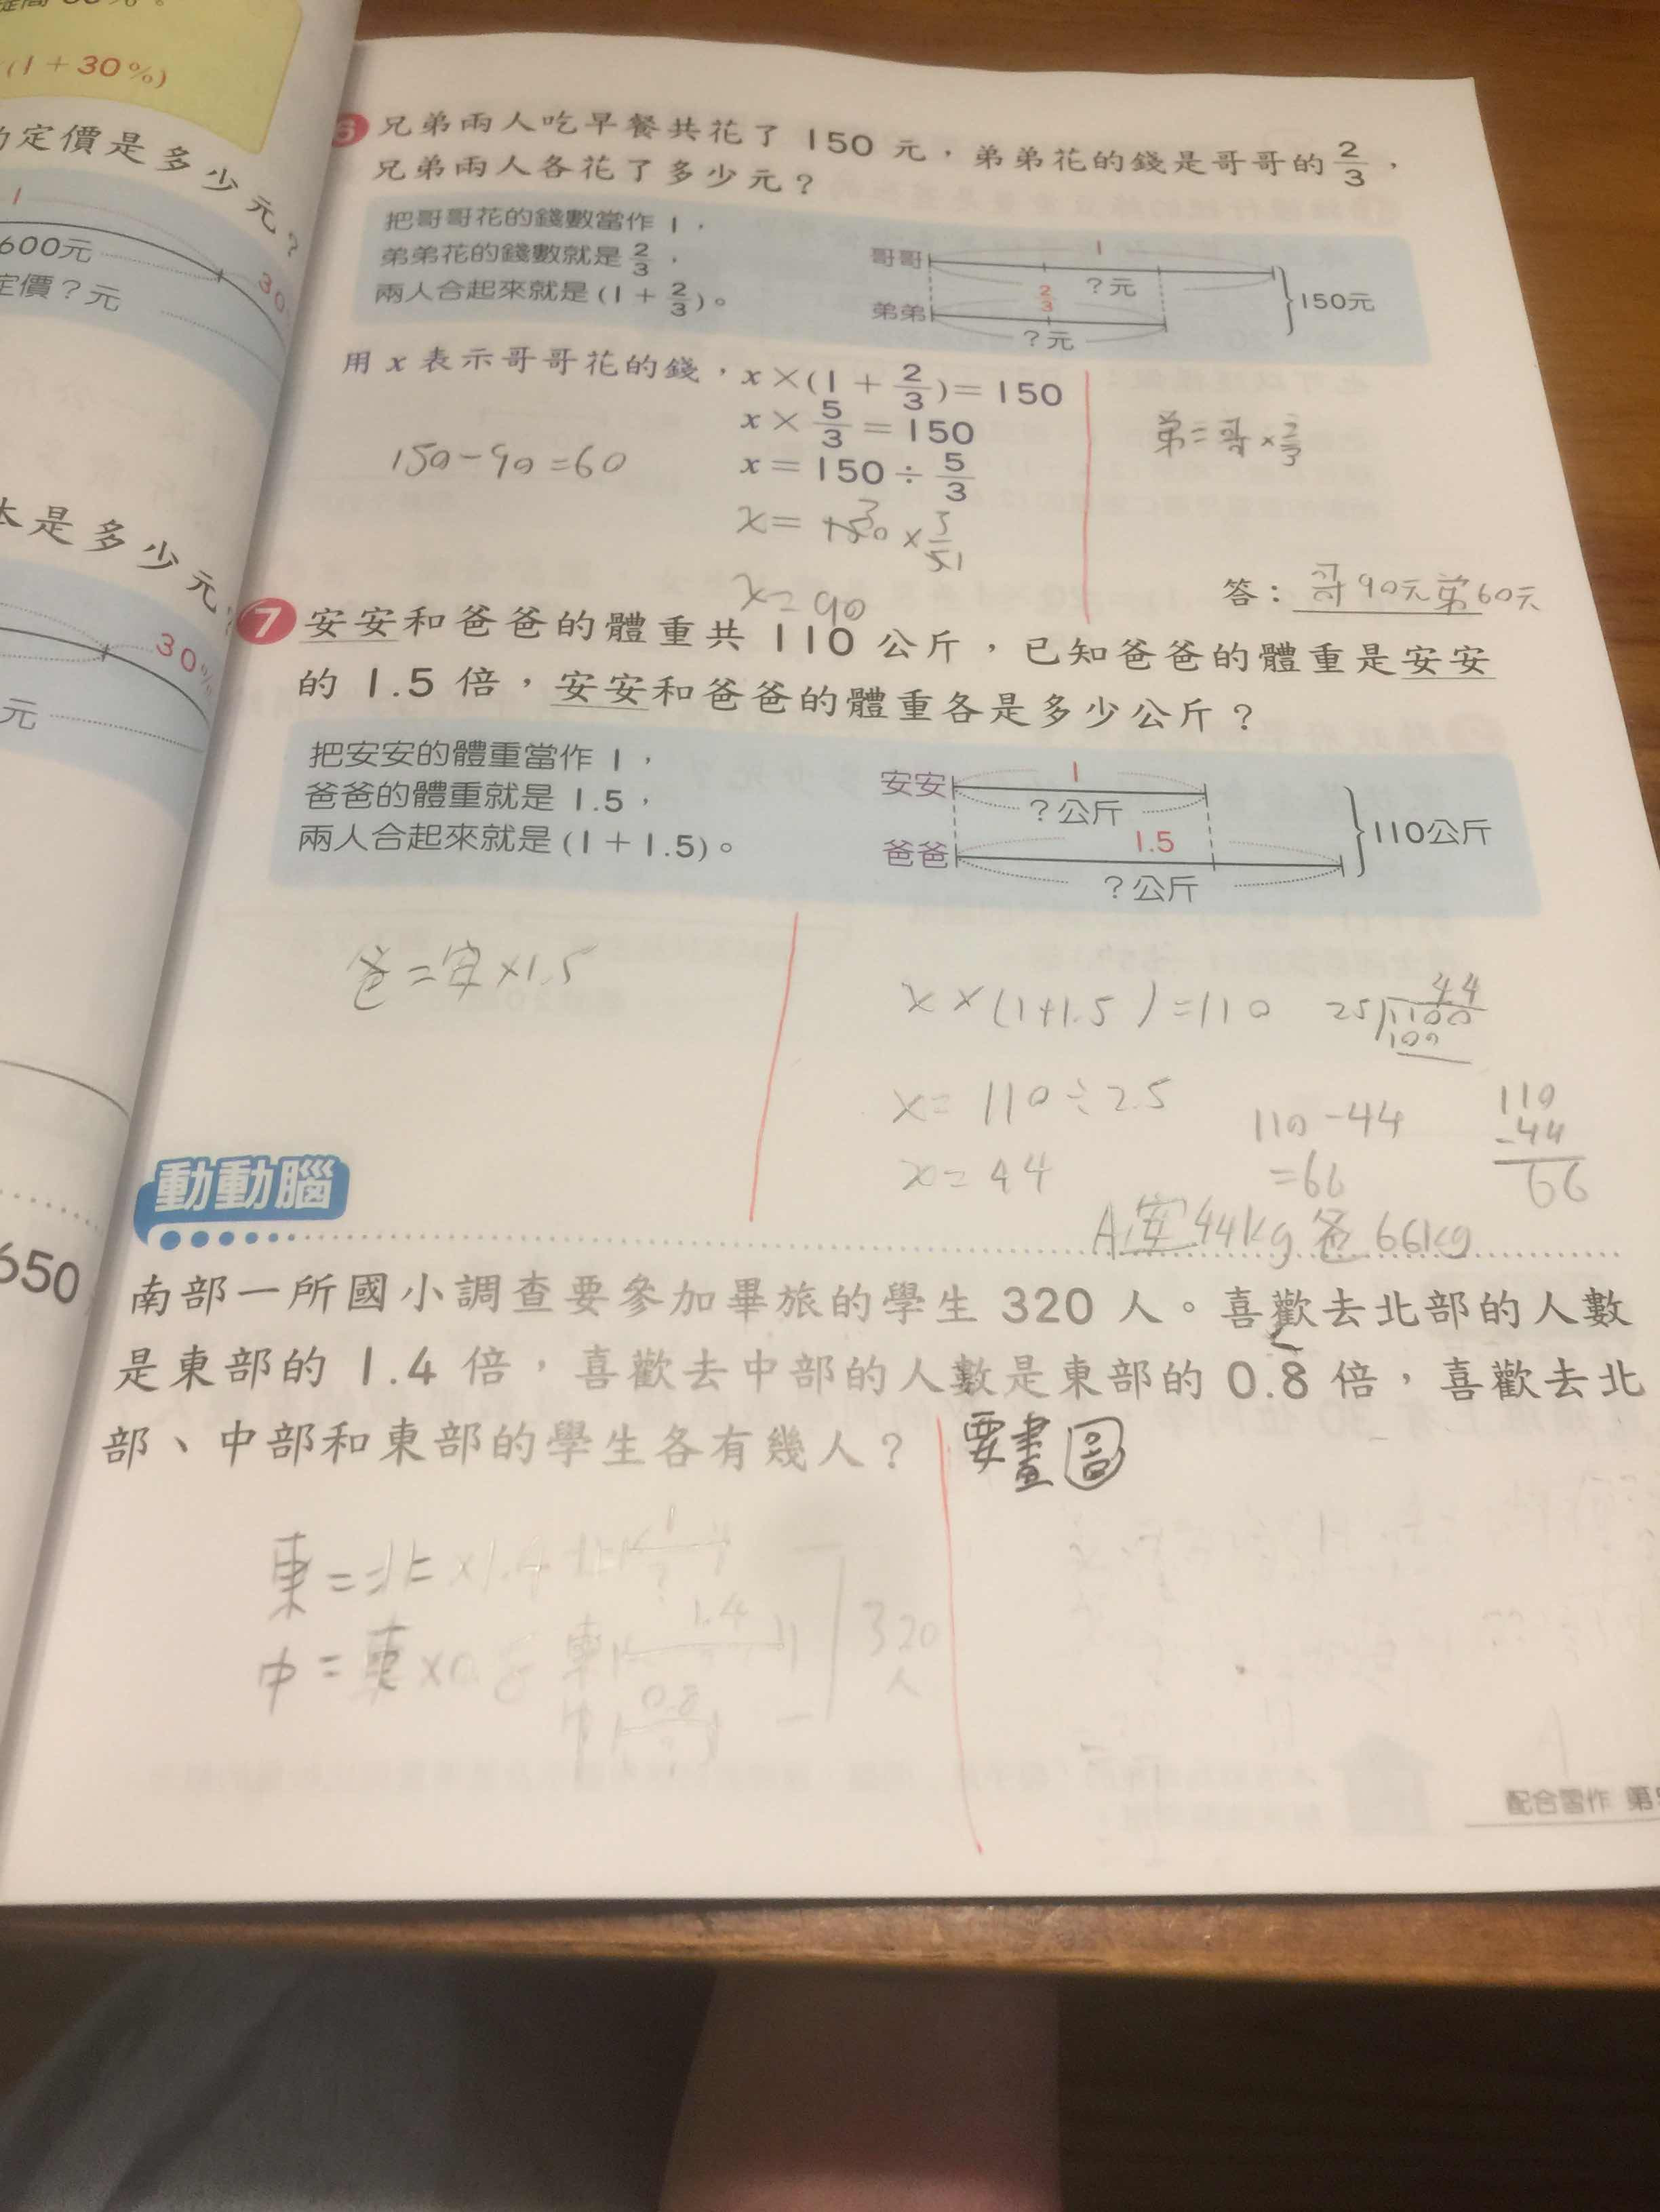 (1+30%)
定價是多少元?
1
600元
30
定價?元
本是多少元?
30%
元
650
6 兄弟兩人吃早餐共花了 150 元,弟弟花的錢是哥哥的 2/3,
兄弟兩人各花了多少元?
把哥哥花的錢數當作 1,
弟弟花的錢數就是 2/3,
兩人合起來就是 (1 + 2/3)。
哥哥
1
?元
弟弟
2/3
?元
150元
用 x 表示哥哥花的錢,x×(1 + 2/3)=150
x × 5/3 = 150
x = 150 ÷ 5/3
x = 150 × 3/5
x = 90
150-90=60
弟=哥×2/3
答: 哥90元弟60元
7 安安和爸爸的體重共 110 公斤,已知爸爸的體重是安安
的 1.5 倍,安安和爸爸的體重各是多少公斤?
把安安的體重當作 1,
爸爸的體重就是 1.5,
兩人合起來就是 (1 + 1.5)。
安安
1
?公斤
爸爸
1.5
?公斤
110公斤
爸=安×1.5
x×(1+1.5)=110
x=110÷2.5
x=44
44
25 1100
100
110-44
=66
110
-44
66
A:安44kg爸66kg
動動腦
南部一所國小調查要參加畢旅的學生 320 人。喜歡去北部的人數
是東部的 1.4 倍,喜歡去中部的人數是東部的 0.8 倍,喜歡去北
部、中部和東部的學生各有幾人?
要畫圖
東=北×1.4
中=東×0.8
北
1
?
東
1.4
中
0.8
320
人
配合習作 第